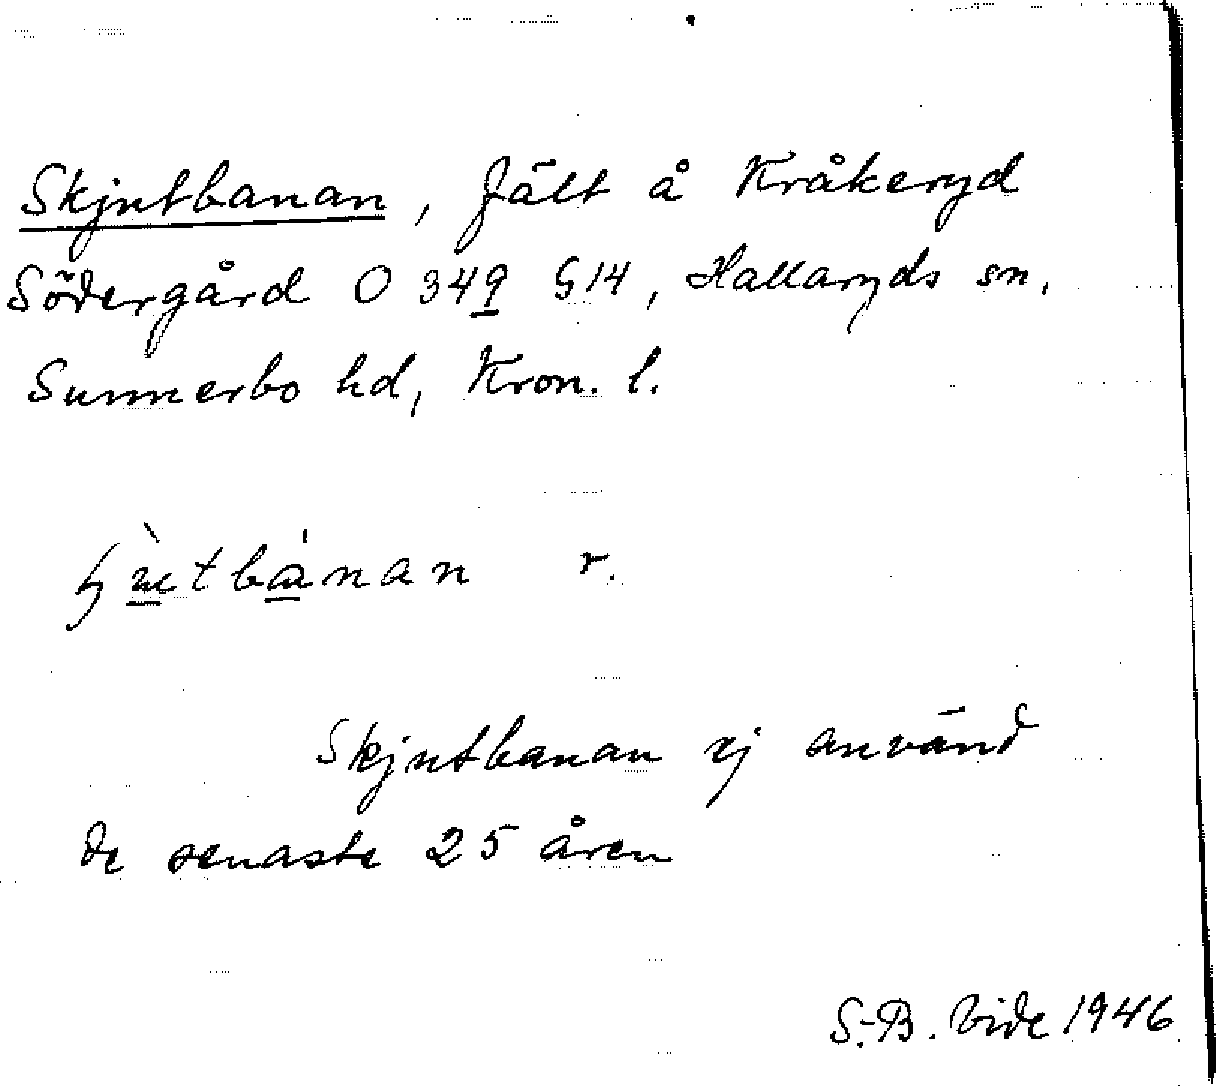 Skjutbanan, fält å Kråkeryd
Södergård O 349 G14, Hallaryds sn,
Sunnerbo hd, Kron. l.
ɧùtbánan r.
Skjutbanan ej använd
de senaste 25 åren
S.-B. Vide 1946